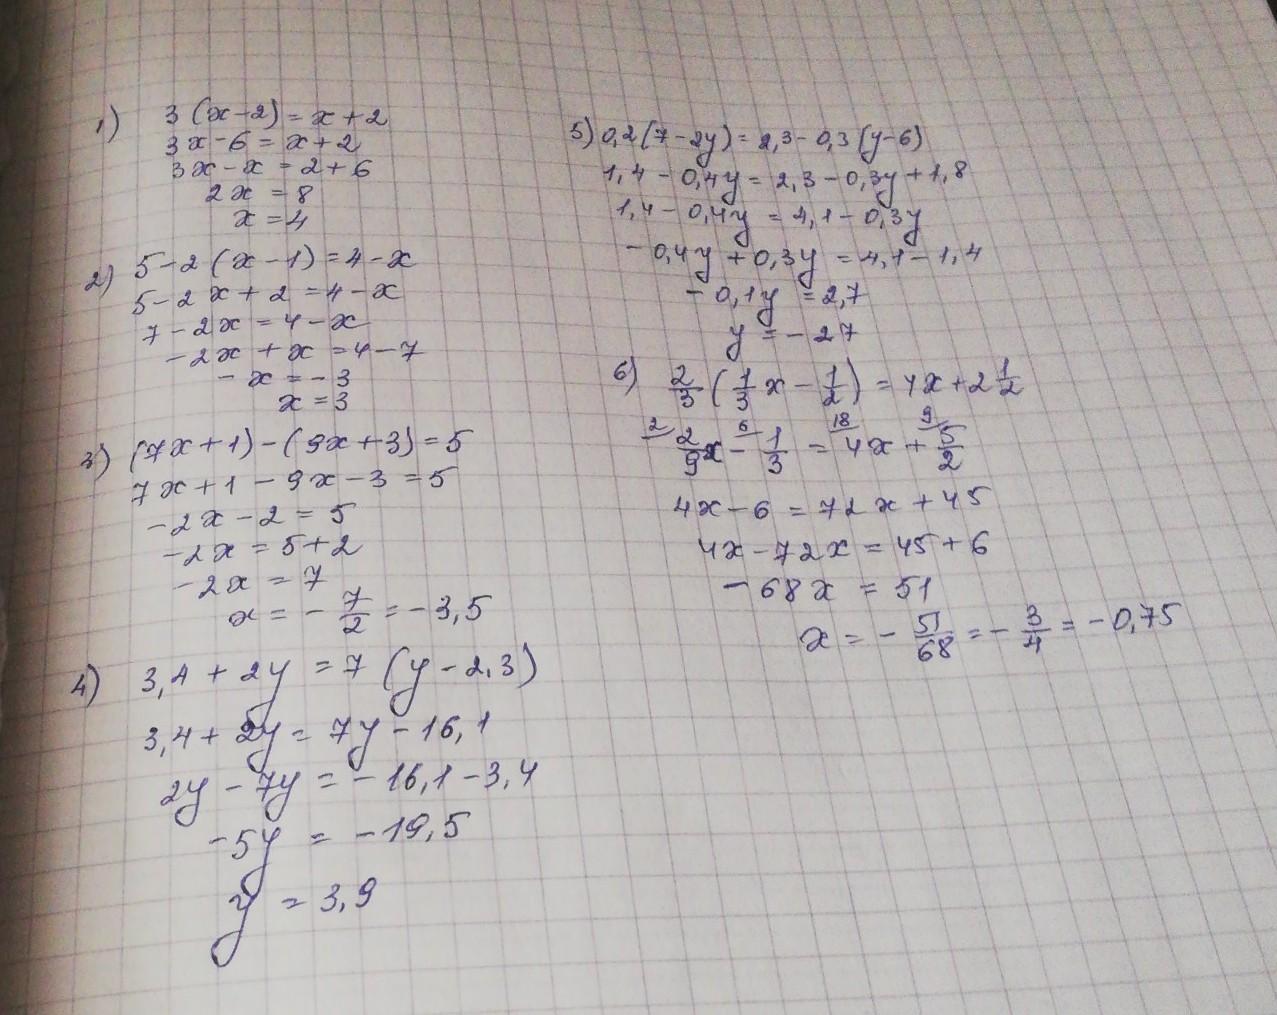 1) 3(x-2)=x+2
3x-6=x+2
3x-x=2+6
2x=8
x=4
2) 5-2(x-1)=4-x
5-2x+2=4-x
7-2x=4-x
-2x+x=4-7
-x=-3
x=3
3) (7x+1)-(9x+3)=5
7x+1-9x-3=5
-2x-2=5
-2x=5+2
-2x=7
x=-7/2=-3,5
4) 3,4+2y=7(y-2,3)
3,4+2y=7y-16,1
2y-7y=-16,1-3,4
-5y=-19,5
y=3,9
5) 0,2(7-2y)=2,3-0,3(y-6)
1,4-0,4y=2,3-0,3y+1,8
1,4-0,4y=4,1-0,3y
-0,4y+0,3y=4,1-1,4
-0,1y=2,7
y=-27
6) 2/3(1/3x-1/2)=4x+2 1/2
2 6 18 9
2/9x-1/3=4x+5/2
4x-6=72x+45
4x-72x=45+6
-68x=51
x=-51/68=-3/4=-0,75